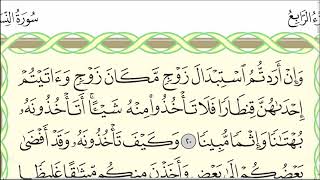 سُورَةُ النِّسَ
ءُ الرَّابِعُ
وَإِنْ أَرَدتُّمُ ٱسْتِبْدَالَ زَوْجٍ مَّكَانَ زَوْجٍ وَءَاتَيْتُمْ
إِحْدَىٰهُنَّ قِنطَارًا فَلَا تَأْخُذُوا۟ مِنْهُ شَيْـًٔا ۚ أَتَأْخُذُونَهُۥ
بُهْتَـٰنًا وَإِثْمًا مُّبِينًا ٢٠ وَكَيْفَ تَأْخُذُونَهُۥ وَقَدْ أَفْضَىٰ
بَعْضُكُمْ إِلَىٰ بَعْضٍ وَأَخَذْنَ مِنكُم مِّيثَـٰقًا غَلِيظًا